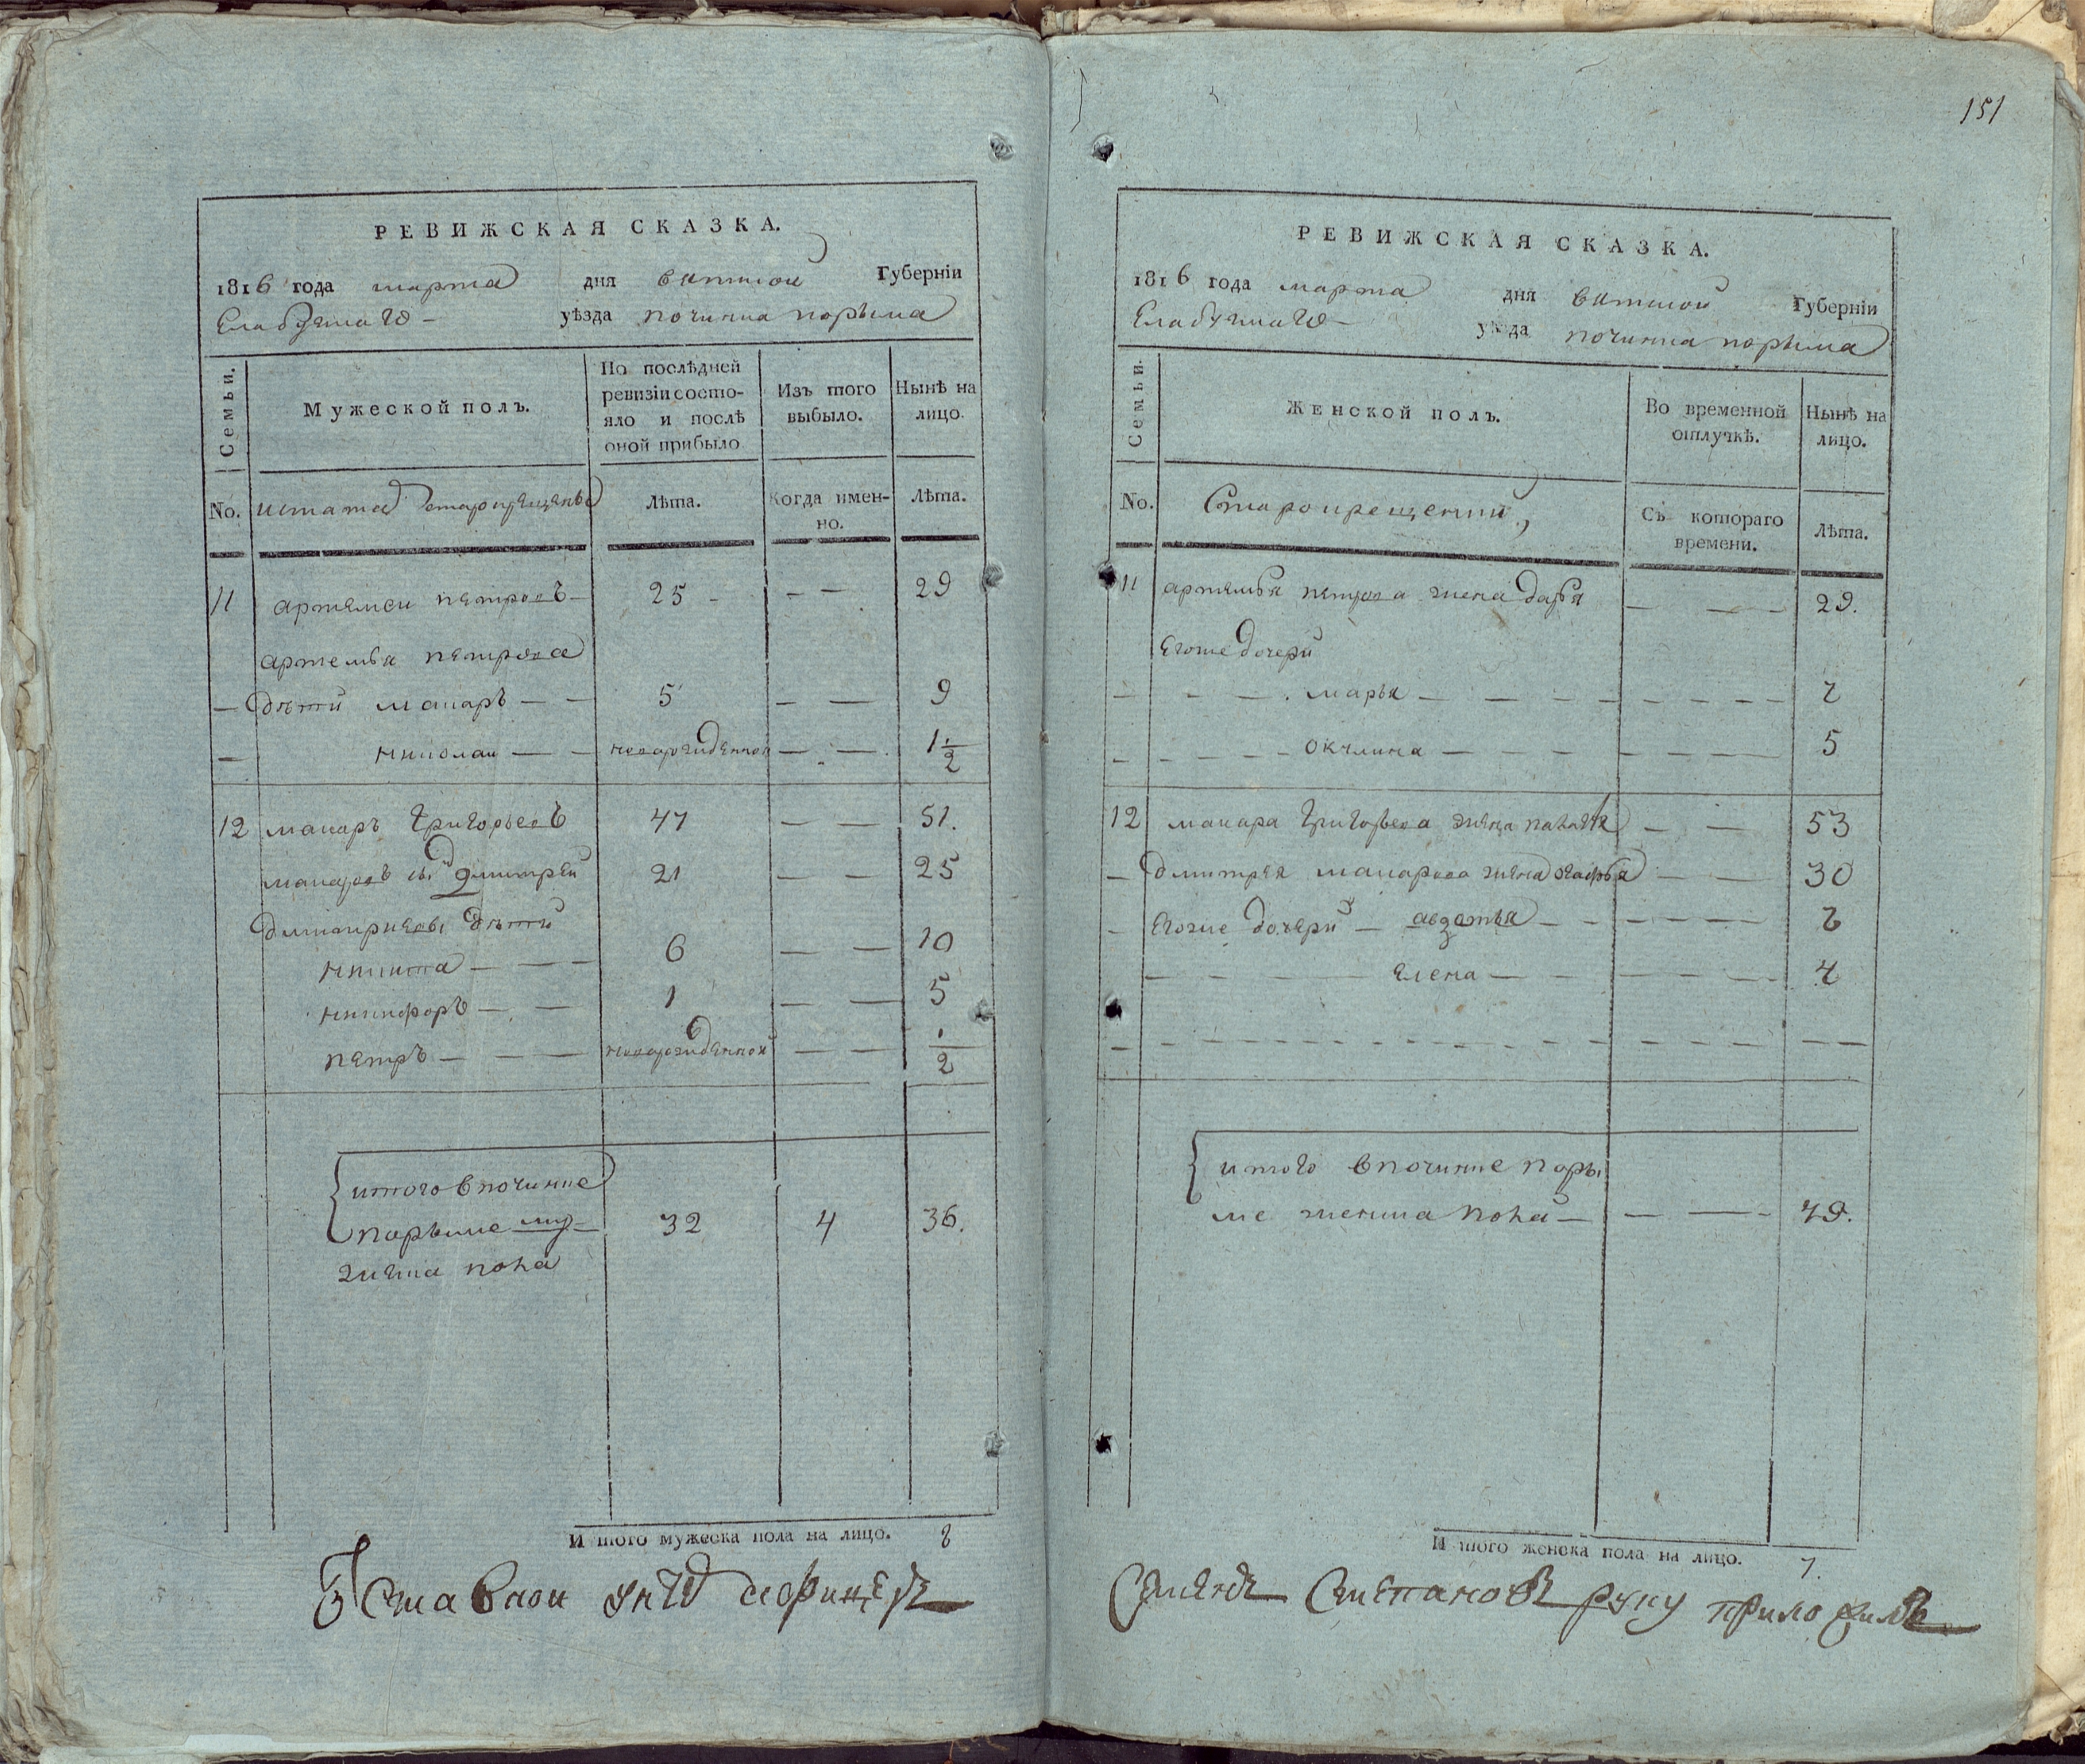 РЕВИЖСКАЯ СКАЗКА.
1816 года марта дня вятской Губерніи
Елабужскаго уѣзда починка порыма
Семьи.
Мужеской полъ.
По послѣдней
ревизіи состо-
яло и послѣ
оной прибыло
Изъ того
выбыло.
Нынѣ на
лицо.
No.
Лѣта.
Когда имен-
но.
Лѣта.
11 артемеи петровъ 25 - - - 29
артемья петрова
— дѣти макаръ — — 5 — — 9
— николаи — — новорожденной — — 1 1/2
12 макаръ григорьевъ 47 — — 51.
макаровъ сынъ дмитреи 21 — — 25
дмитриевы дѣти
никита — — — 6 — — 10
никифоръ — — 1 — — 5
петръ — — — новорожденной — — 1/2
итого в починке
порыме му-
жеска пола 32 4 36.
И того мужеска пола на лицо. 8
151
РЕВИЖСКАЯ СКАЗКА.
1816 года марта дня вятской Губерніи
Елабужскаго уѣзда починка порыма
Семьи.
Женской полъ.
Во временной
отлучкѣ.
Нынѣ на
лицо.
No.
Старокрещении
Съ котораго
времени.
Лѣта.
11 артемья петрова жена дарья — — 29.
егоже дочери
марья 7
окулина 5
12 макара григорьева жена — — 53
— дмитрея макарова жена — — 30
— егоже дочери — авдотья
елена — 4
итого в починке поры
ме женска пола — — — 49.
И того женска пола на лицо. 7.
Семенъ Степановъ руку приложилъ